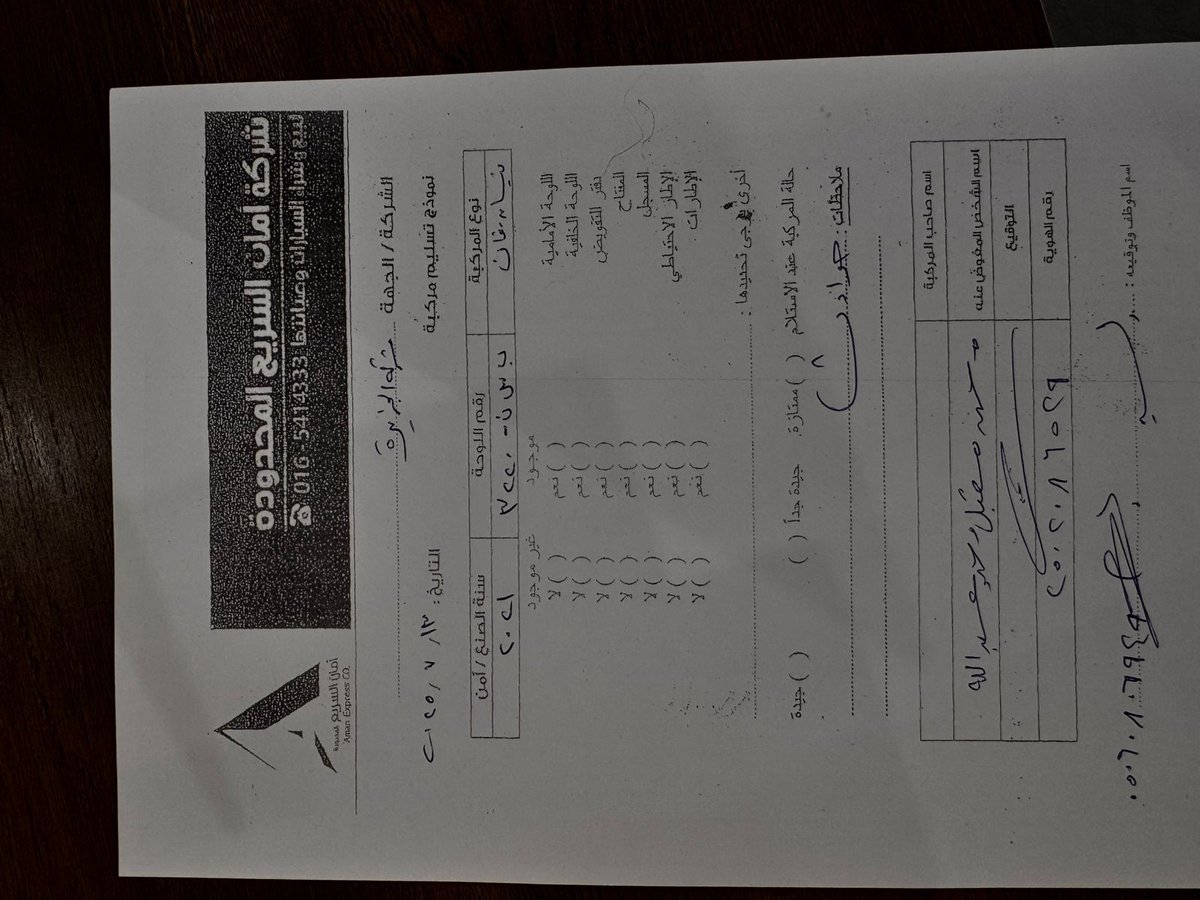 شركة أمان السريع المحدودة
لبيع وشراء السيارات وصيانتها
☎ 016 5414333
أمان السريع المحدودة
Aman Express CO.
الشركة / الجهة شركة الجزيرة
نموذج تسليم مركبة التاريخ : ٢٠٢٥/٧/١٣
نوع المركبة رقم اللوحة سنة الصنع / أمن
٢٠٢١
موجود غير موجود
اللوحة الأمامية ( ) نعم ( ) لا
اللوحة الخلفية ( ) نعم ( ) لا
دفتر التفويض ( ) نعم ( ) لا
المفتاح ( ) نعم ( ) لا
المسجل ( ) نعم ( ) لا
الإطار الاحتياطي ( ) نعم ( ) لا
الإطارات ( ) نعم ( ) لا
أخرى يرجى تحديدها :
حالة المركبة عند الاستلام ( ) ممتازة ( ) جيدة جداً ( ) جيدة
ملاحظات :
اسم صاحب المركبة
اسم الشخص المفوض عنه
التوقيع
رقم الهوية ٢٥٠٢٠٨٦٥٢٩
اسم الموظف وتوقيعه :